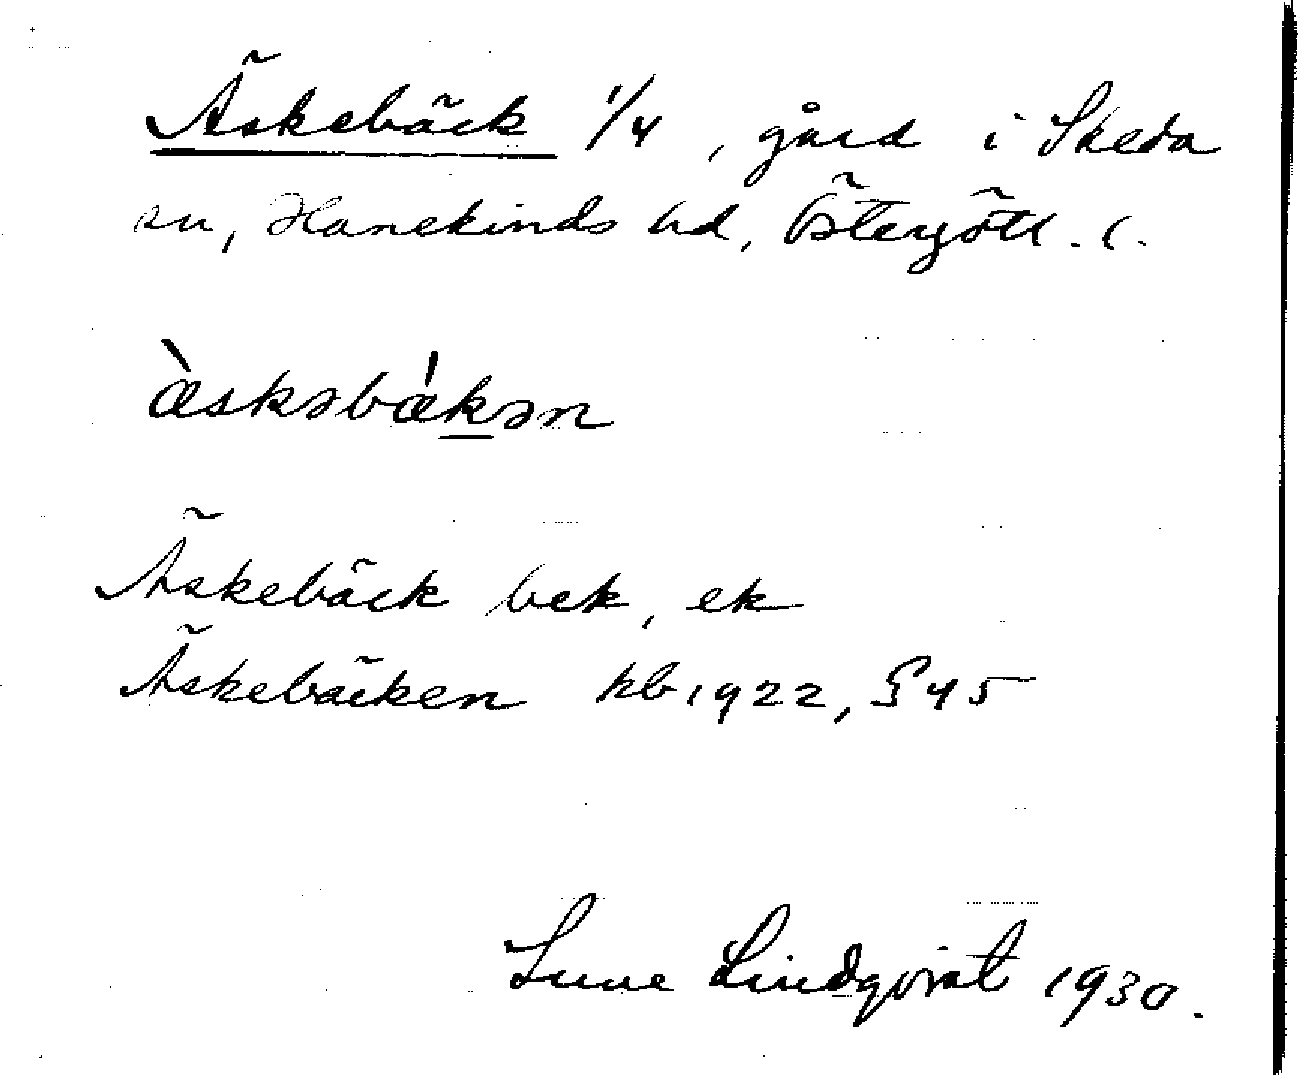 Äskebäck 1/4, gård i Skeda
sn, Hanekinds hd, Östergötl. l.
æ̀skəbǽkən
Äskebäck bek, ek
Äskebäcken kb 1922, § 45
Sune Lindqvist 1930.